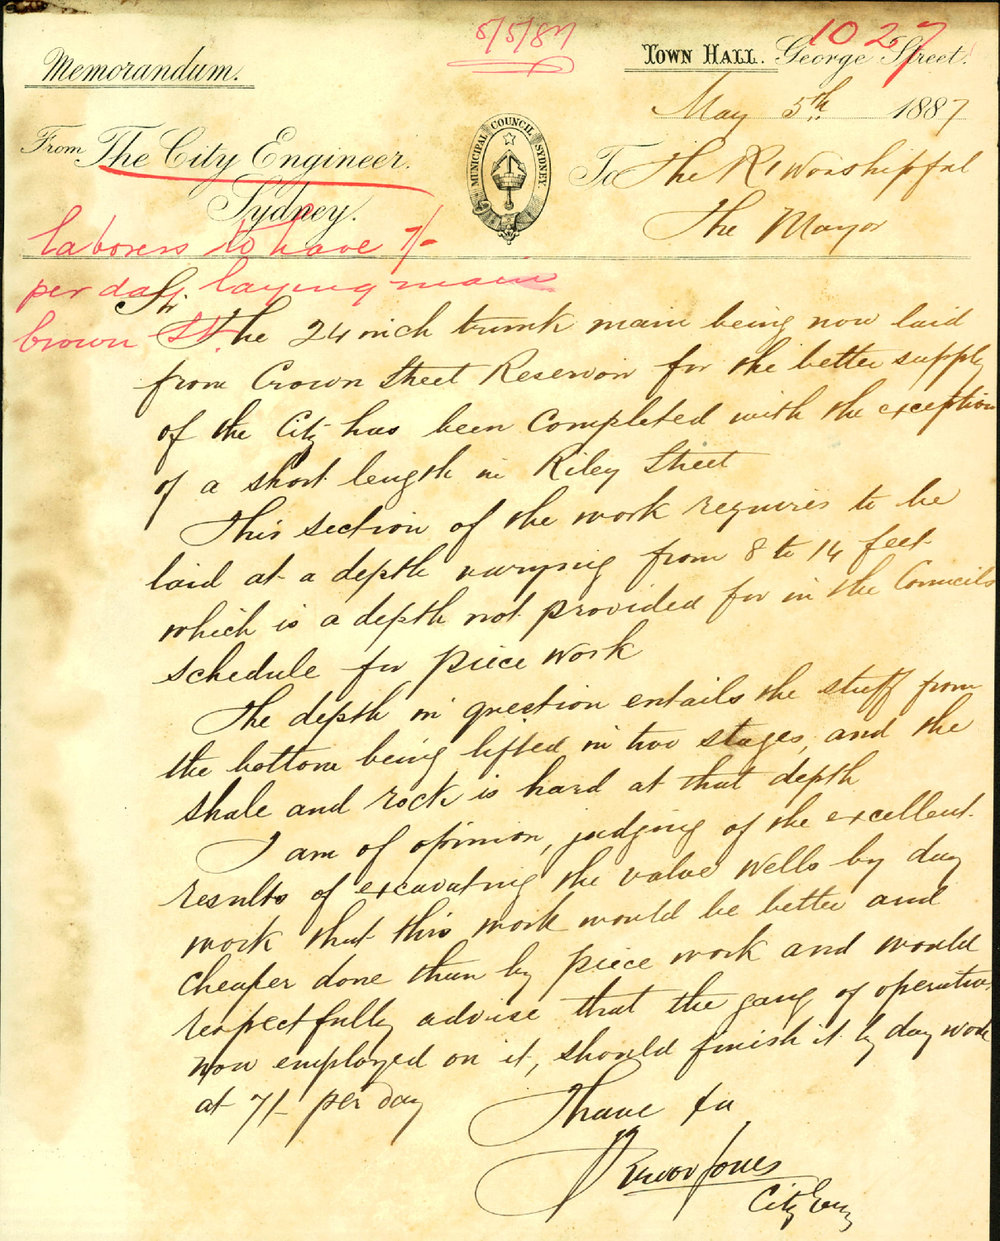 5/5/87
1027
Memorandum.
TOWN HALL. George Street.
May 5th 1887
From The City Engineer.
Sydney.
MUNICIPAL COUNCIL SYDNEY
To The Rt Worshipful
The Mayor
laborers to have 7/-
per day laying main
Crown St.
Sir
The 24 inch trunk main being now laid
from Crown Street Reservoir for the better supply
of the City has been Completed with the exception
of a short length in Riley Street
This section of the work requires to be
laid at a depth varying from 8 to 14 feet
which is a depth not provided for in the Councils
schedule for piece work
The depth in question entails the stuff from
the bottom being lifted in two stages, and the
shale and rock is hard at that depth
I am of opinion, judging of the excellent
results of excavating the valve wells by day
work that this work would be better and
cheaper done than by piece work and would
respectfully advise that the gang of operatives
now employed on it, should finish it by day work
at 7/- per day
I have &c
Trevor Jones
City Eng